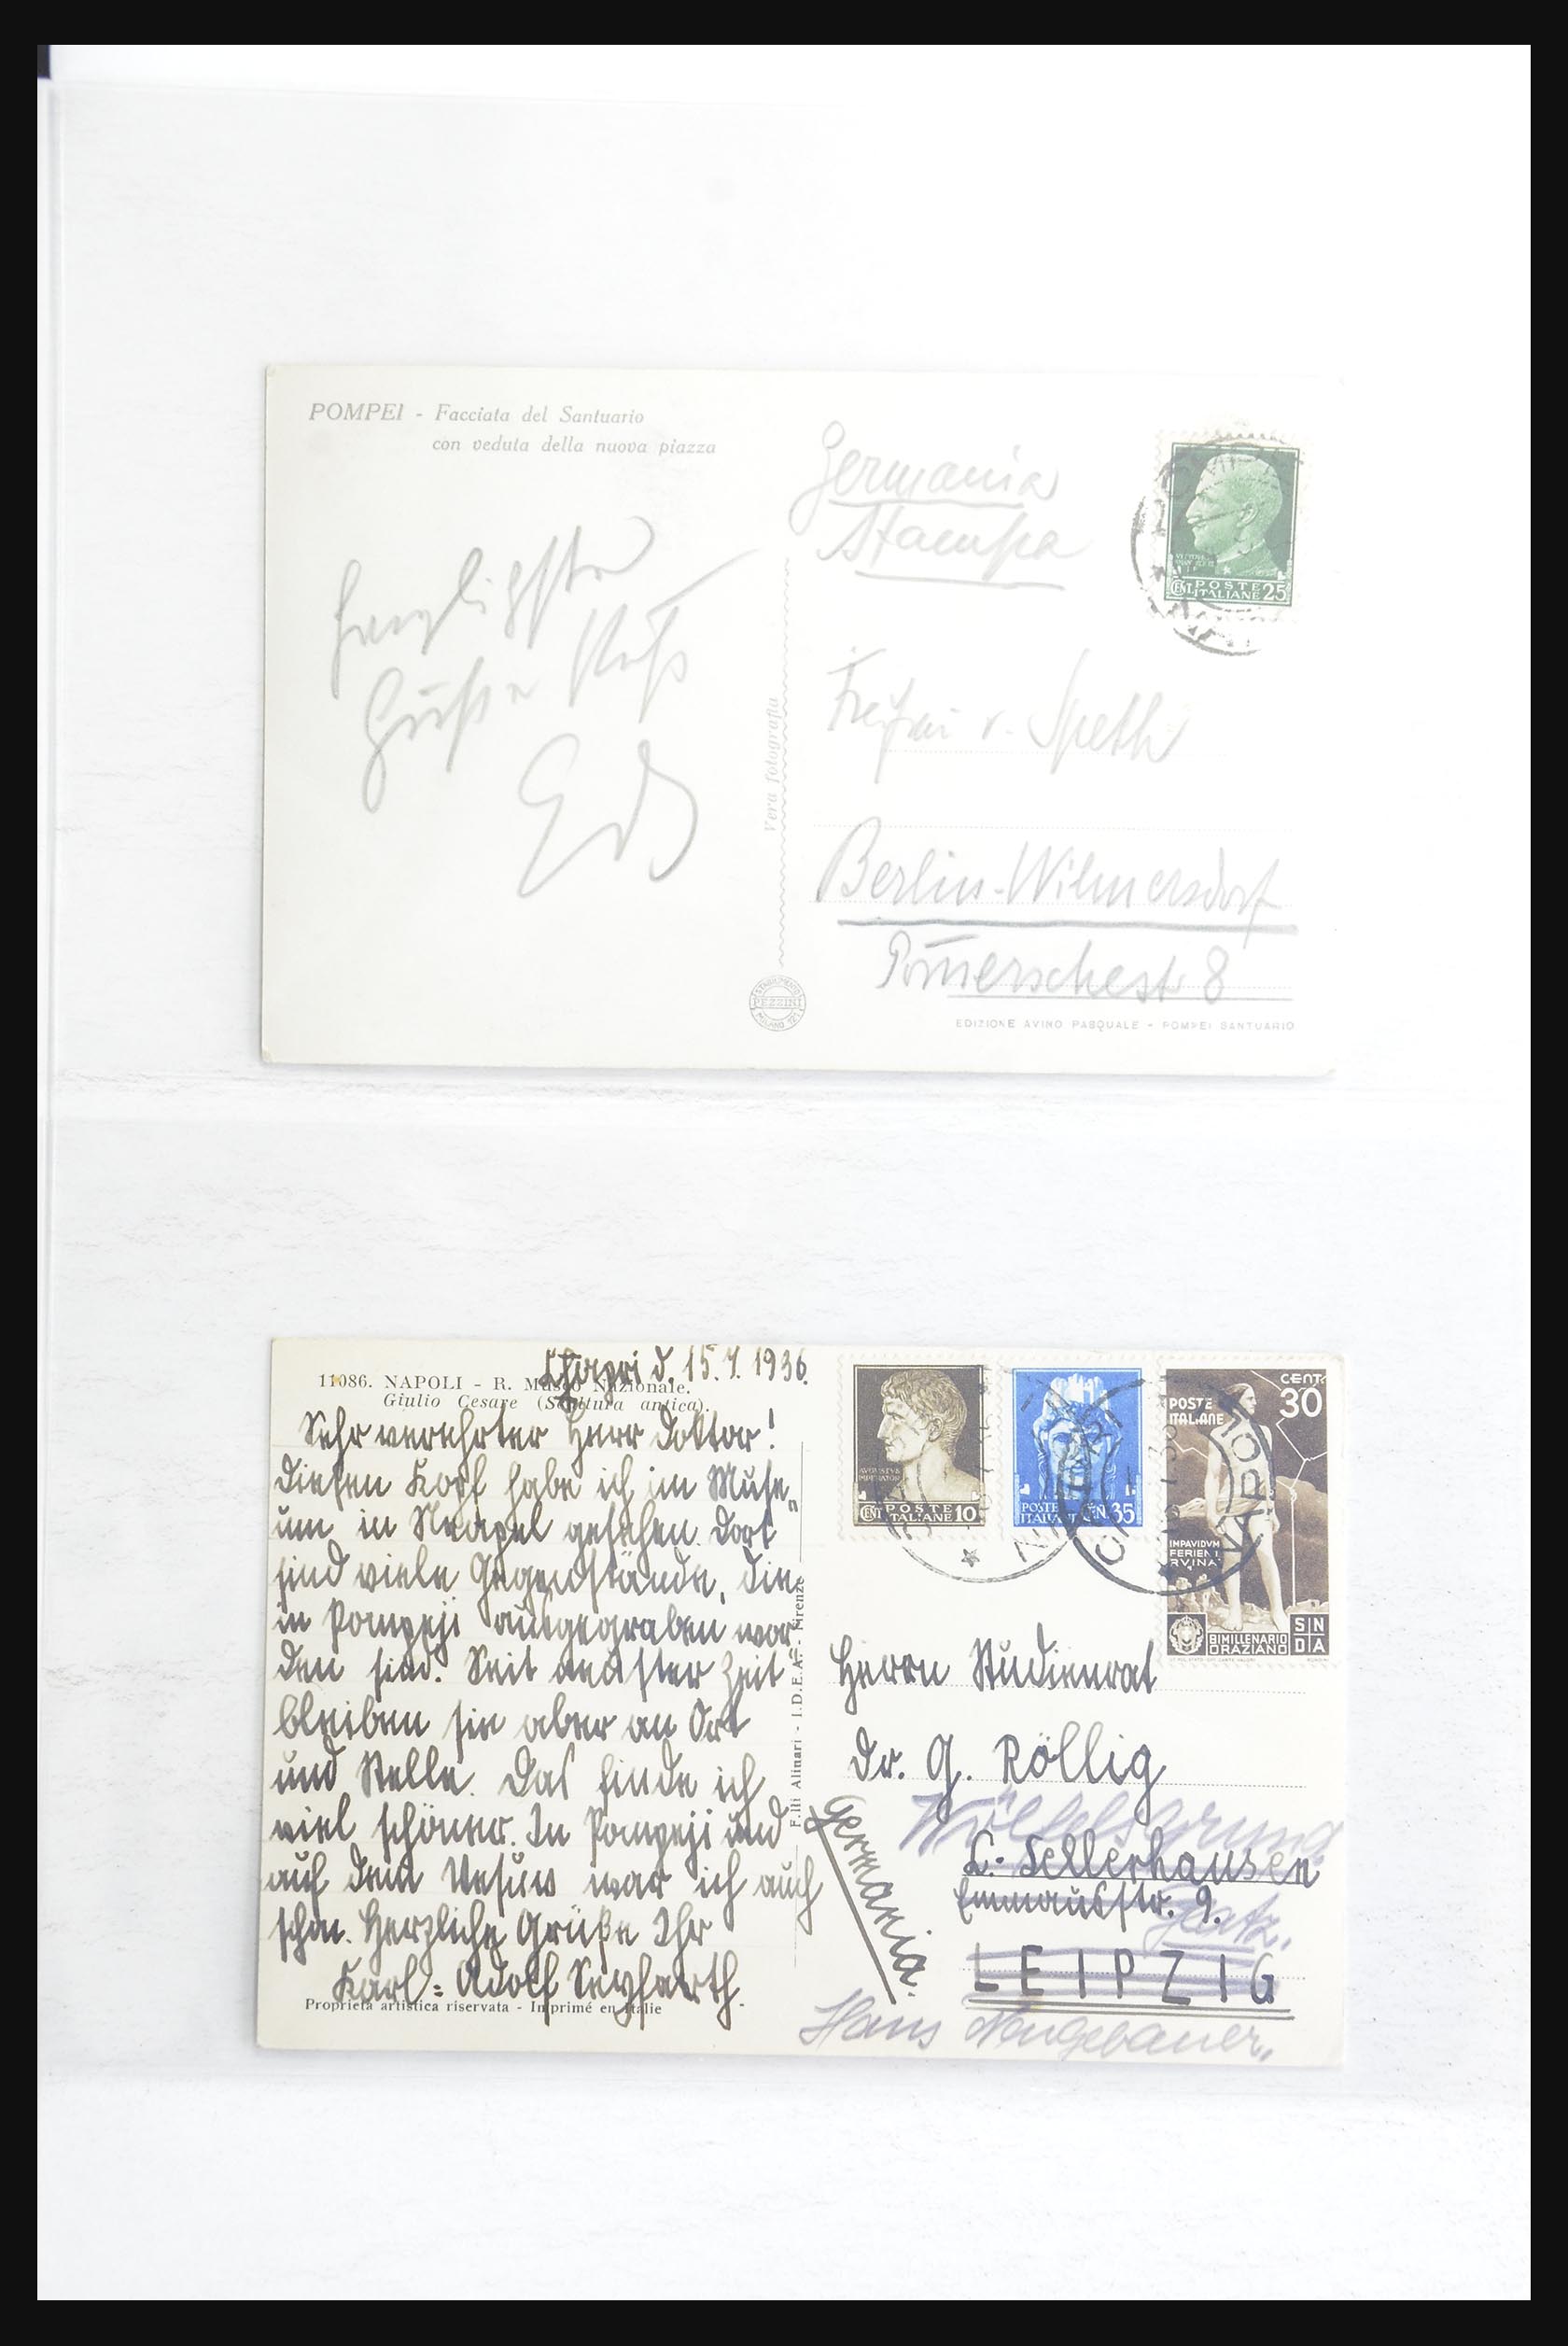 POMPEI - Facciata del Santuario
con veduta della nuova piazza
Germania
Stampa
POSTE
CENT. ITALIANE 25
herzlichste
Grüße
Vera fotografia
v. Speth
Berlin-Wilmersdorf
Pom̄erschestr 8
STABILIMENTO
PEZZINI
MILANO
EDIZIONE AVINO PASQUALE - POMPEI SANTUARIO
Capri d. 15.7.1936.
11086. NAPOLI - R. Museo Nazionale.
Giulio Cesare (Scultura antica).
Sehr verehrter Herr Doktor!
Diesen Kopf habe ich im Muse-
um in Neapel gesehen. Dort
sind viele Gegenstände, die
in Pompeji ausgegraben wor-
den sind. Seit neuster Zeit
bleiben sie aber an Ort
und Stelle. Das finde ich
viel schöner. In Pompeji und
auf dem Vesuv war ich auch
schon. Herzliche Grüße Ihr
Karl-Adolf Seyfarth.
Proprietà artistica riservata - Imprimé en Italie
F.lli Alinari - I.D.E.A. - Firenze
AVGVSTVS
IMPERATOR
POSTE
CENT. ITALIANE 10
POSTE CEN. 35
ITALIANE
CENT.
POSTE 30
ITALIANE
IMPAVIDVM
FERIENT
RVINAE
BIMILLENARIO
ORAZIANO
S N
D A
NAPOLI
Herrn Studienrat
Dr. G. Röllig
Wölfelsgrund
L.-Sellerhausen
Emmausstr. 9.
Glatz.
LEIPZIG
Germania.
Hans Neugebauer.